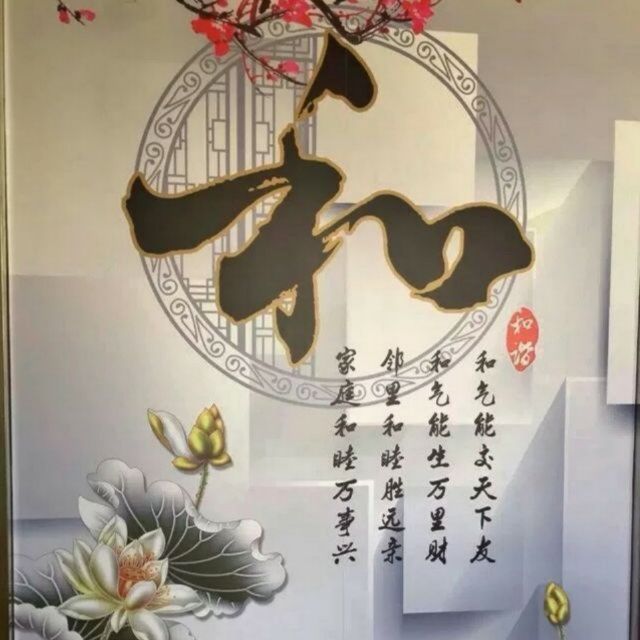 和
和谐
和气能交天下友
和气能生万里财
邻里和睦胜远亲
家庭和睦万事兴